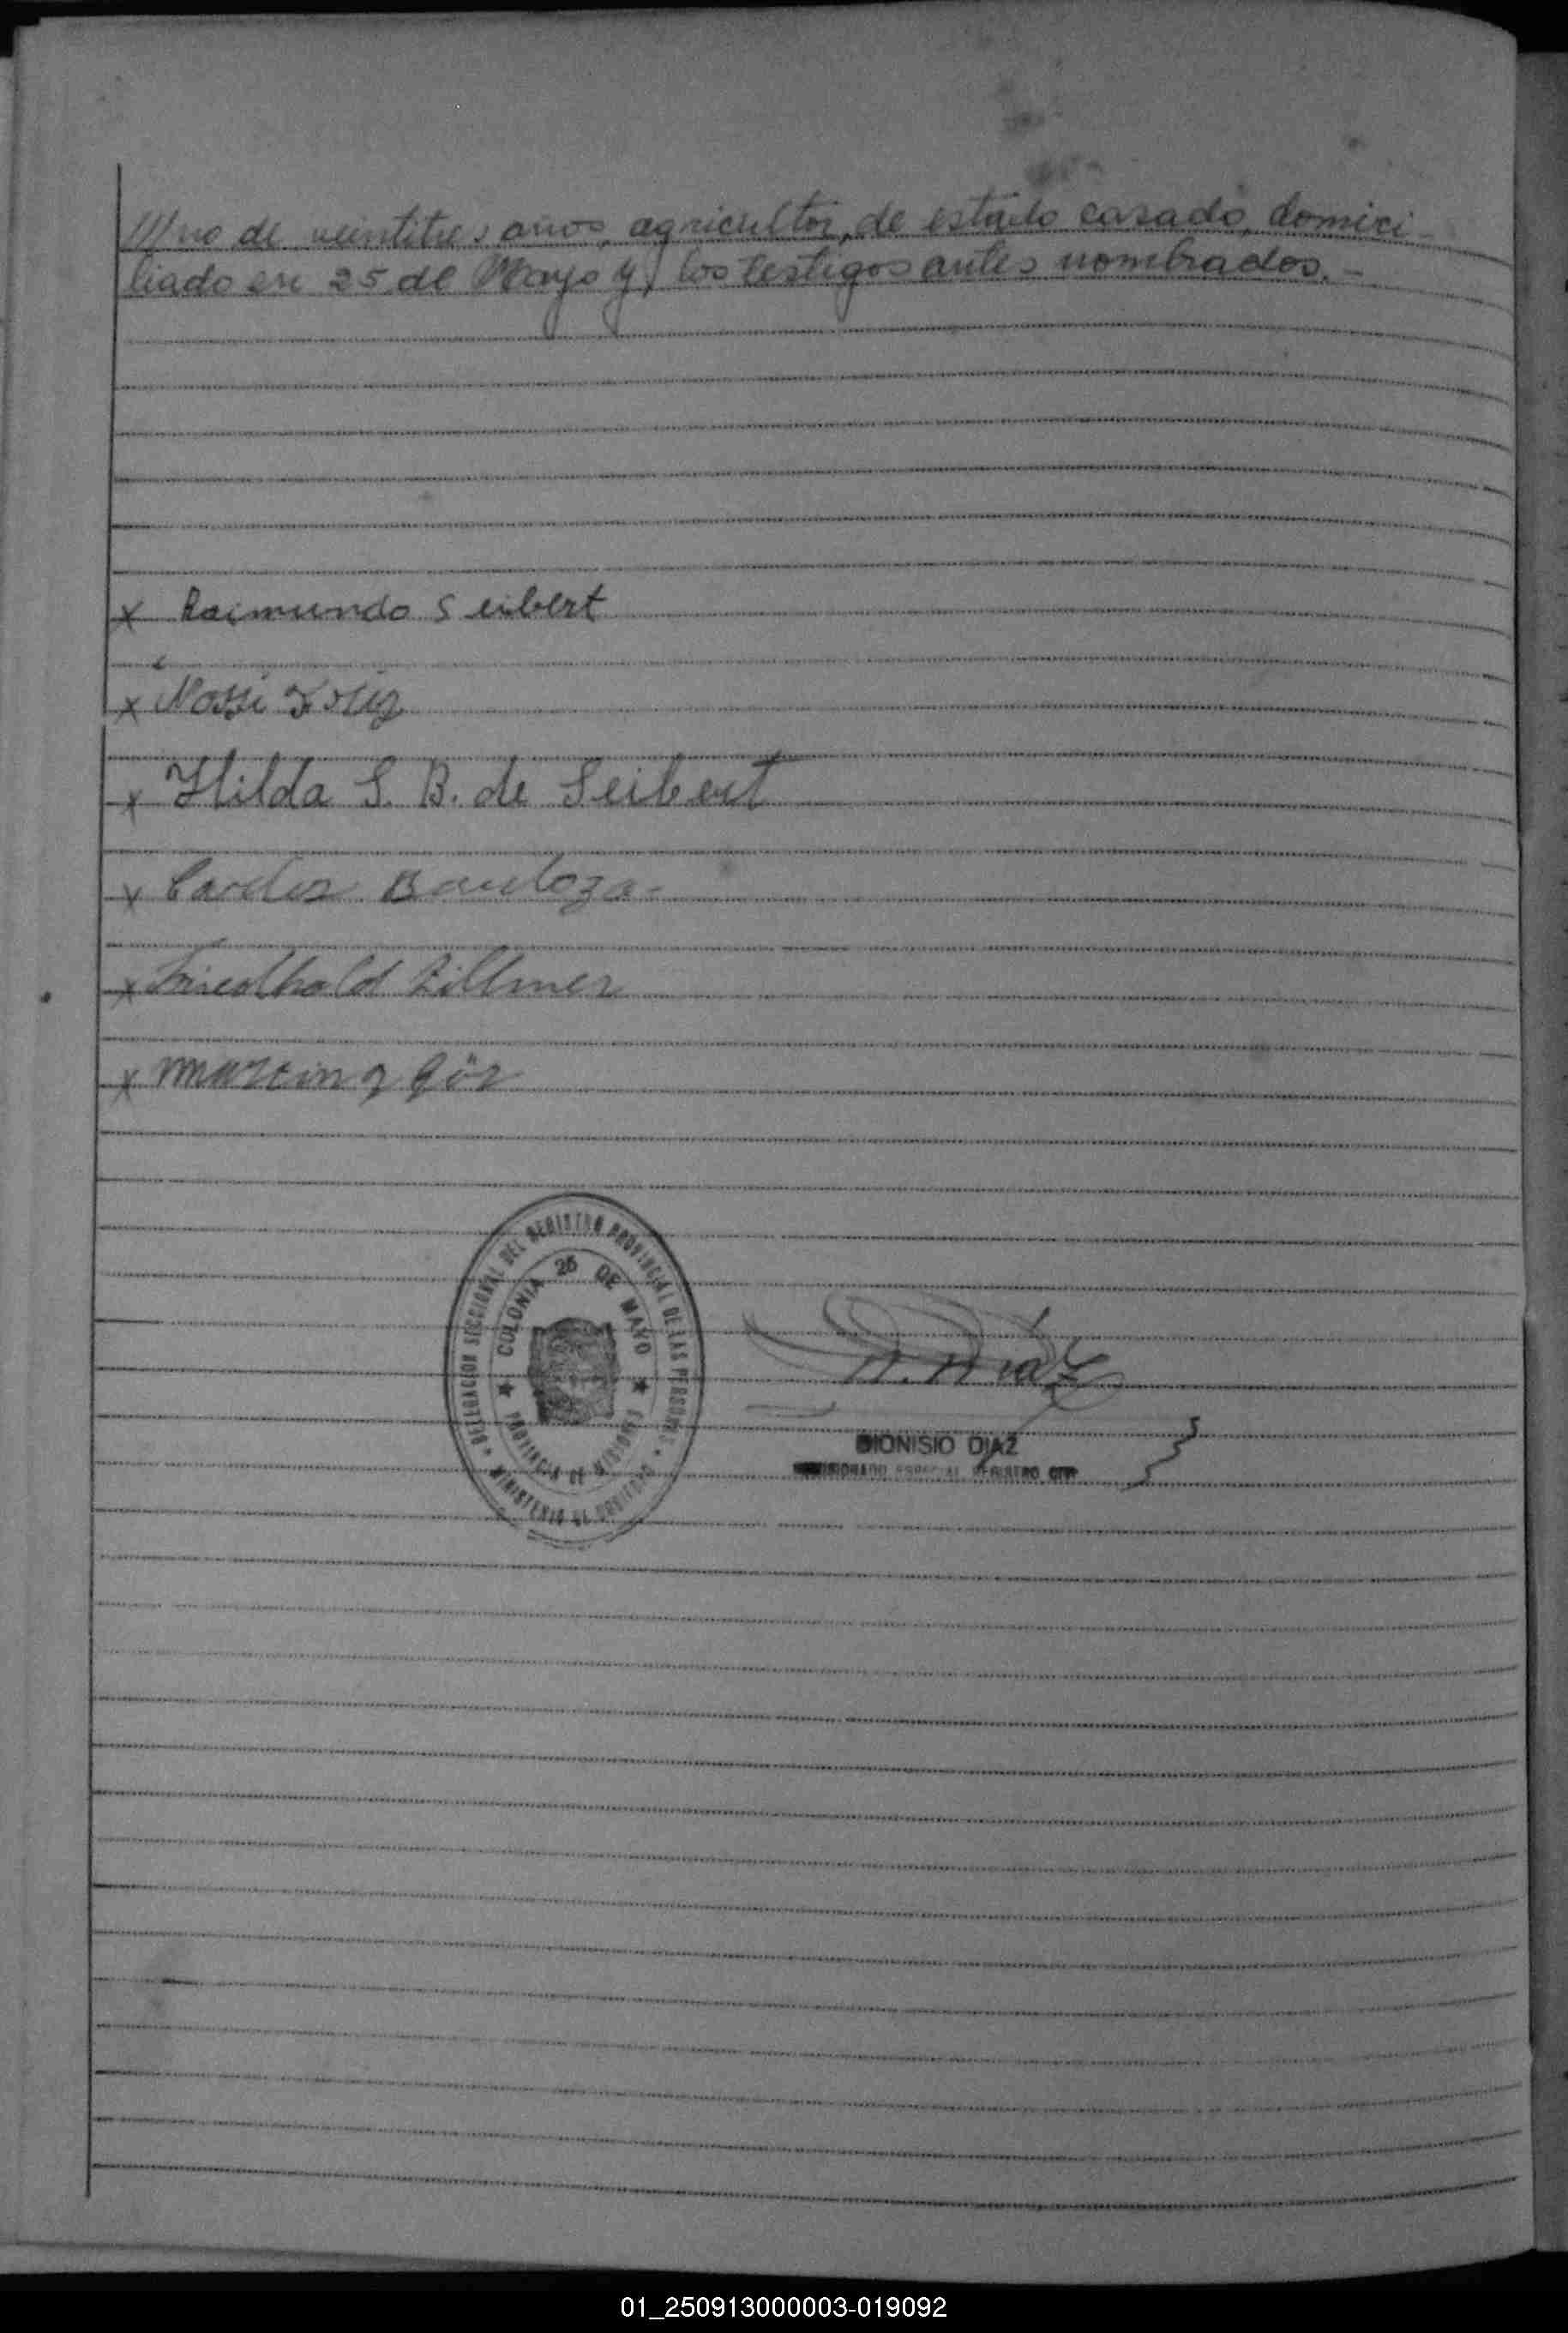 ///no de veintitres años, agricultor, de estado casado, domici-
liado en 25 de Mayo y, los testigos antes nombrados.-
x Raimundo Seibert
x
x Hilda S. B. de Seibert
x Carlos
x Friedhold Zillmer
x
DELEGACION SECCIONAL DEL REGISTRO PROVINCIAL DE LAS PERSONAS
COLONIA 25 DE MAYO
PROVINCIA DE MISIONES
MINISTERIO DE GOBIERNO
D. Diaz
DIONISIO DIAZ
ESPECIAL REGISTRO
01_250913000003-019092